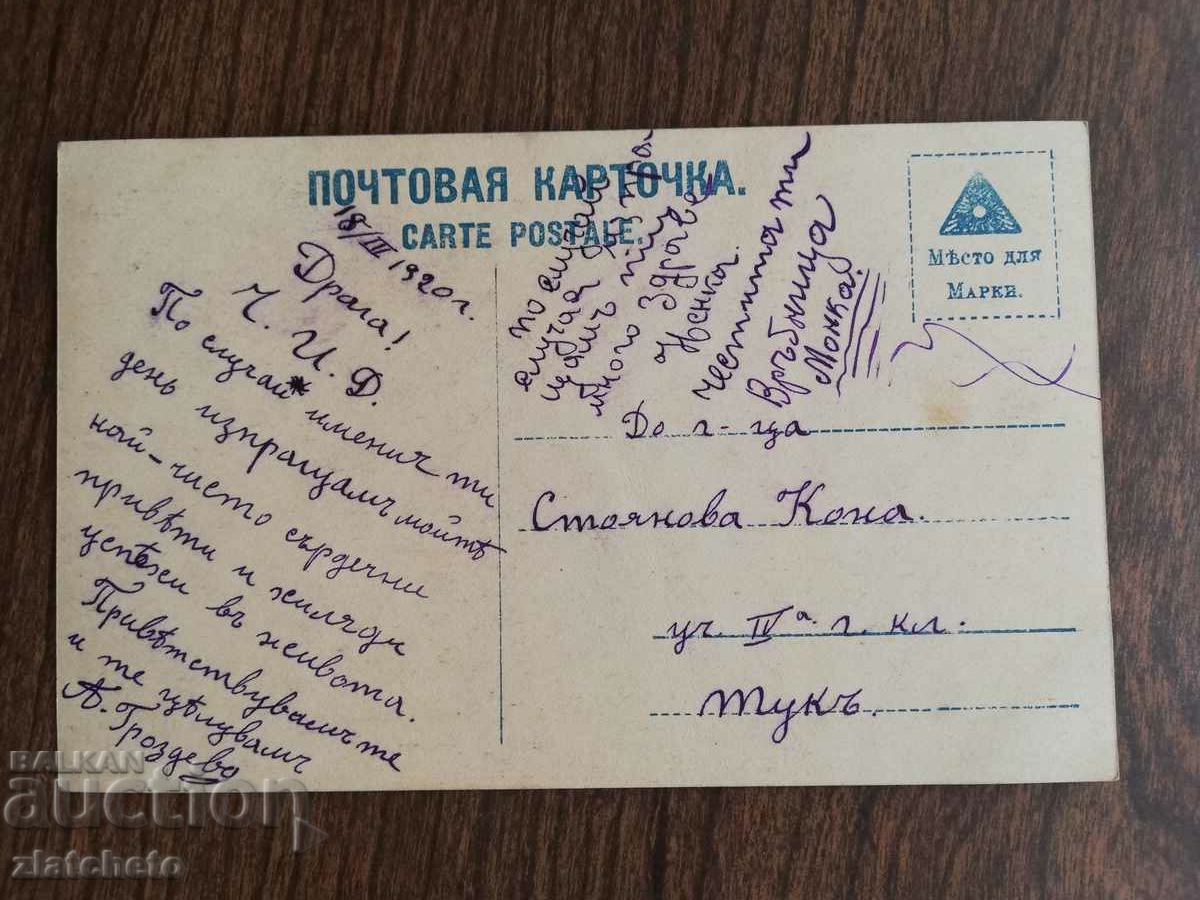 ПОЧТОВАЯ КАРТОЧКА.
CARTE POSTALE.
Мѣсто для
Марки.
18/III 1920 г.
Драга!
Ч. И. Д.
По случай имения ти
день изпращамъ мойтѣ
най-чисто сърдечни
привѣти и хиляди
успѣхи въ живота.
Привѣтствувамъ те
и те цѣлувамъ
А. Гроздева
по случай
случая
много здраве
Ненка.
честита ти
Връбница
Монка!
До г-ца
Стоянова Кона.
уч. IVа. г. кл.
тукъ.
BALKAN
auction
zlatcheto